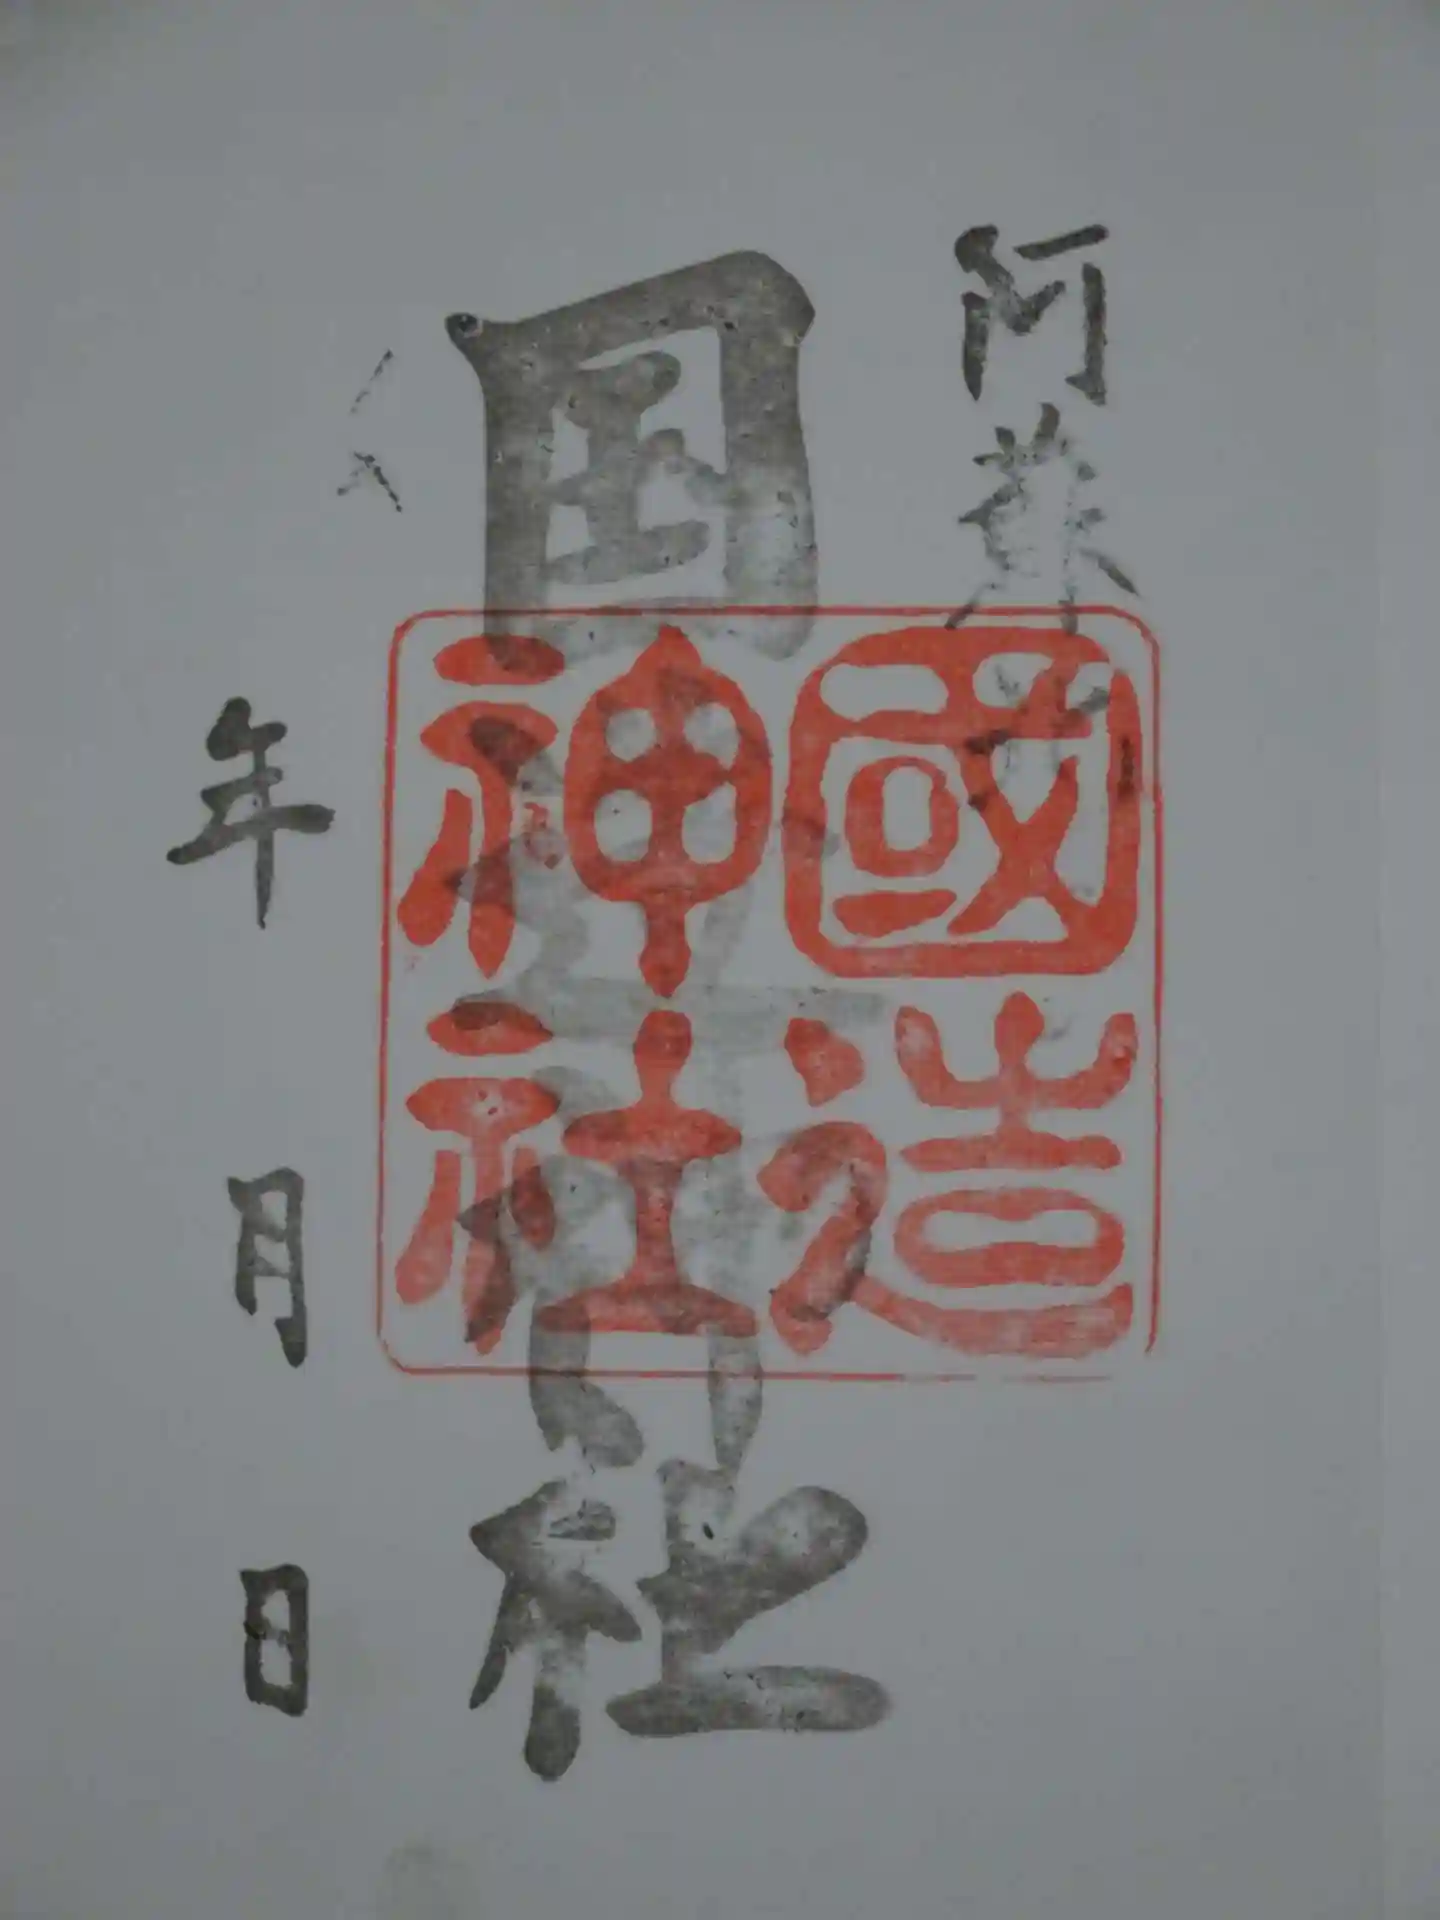 阿蘇
国造神社
國造
神社
年 月 日